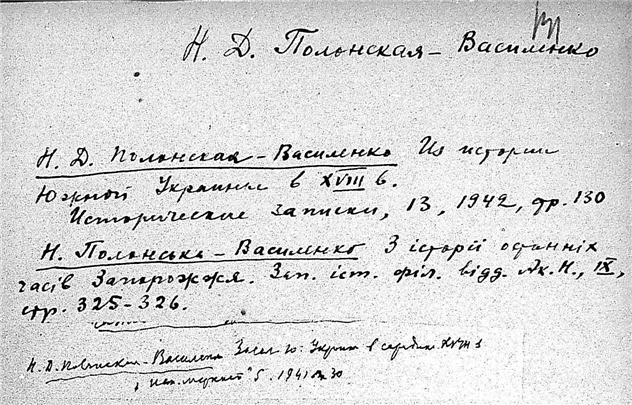 Н. Д. Полонская-Василенко
Н. Д. Полонская-Василенко Из истории
Южной Украины в XVIII в.
Исторические записки, 13, 1942, стр. 130
Н. Полонська-Василенко З історії останніх
часів Запорожжя. Зап. іст. філ. відд. Ак. Н., IX,
стр. 325-326.
Н. Д. Полонская-Василенко Ю. Украин в середин XVIII в
5. 1941 30